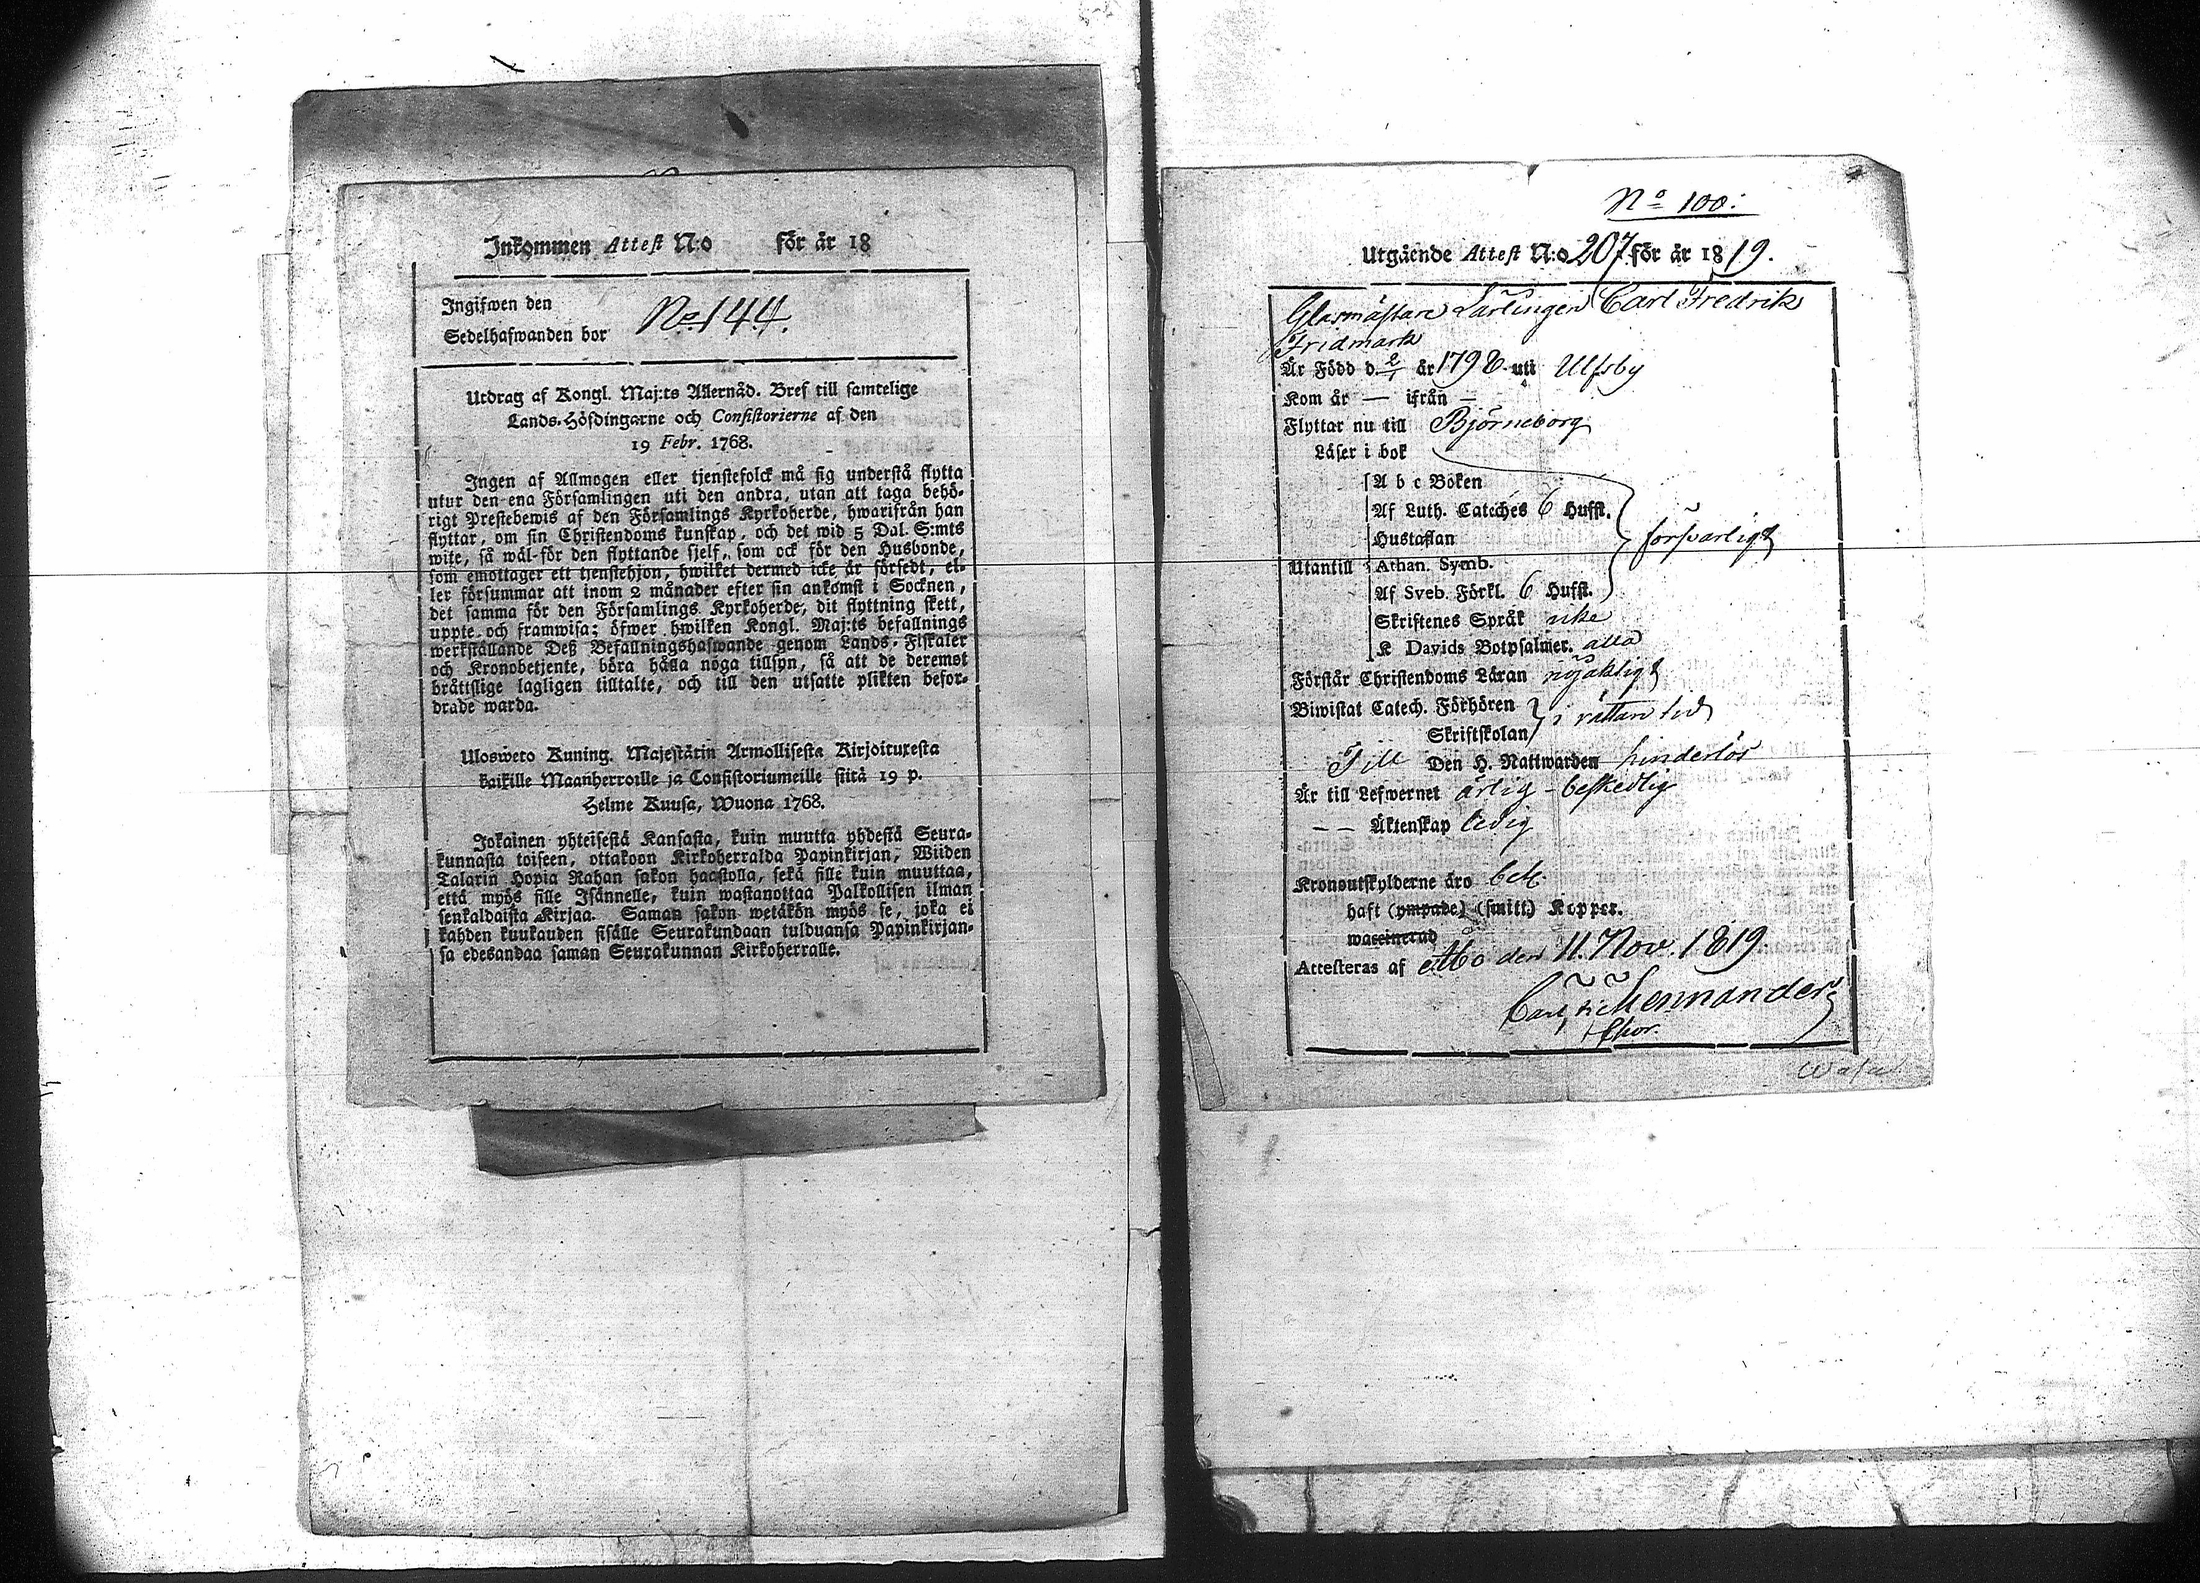 Inkommen Attest N:o för år 18
Ingifwen den
Sedelhafwanden bor No 144.
Utdrag af Kongl. Maj:ts Allernåd. Bref till samtelige
Lands-Höfdingarne och Consistorierne af den
19 Febr. 1768.
Ingen af Allmogen eller tjenstefolck må sig understå flytta
utur den ena Församlingen uti den andra, utan att taga behö-
rigt Prestebewis af den Församlings Kyrkoherde, hwarifrån han
flyttar, om sin Christendoms kunskap, och det wid 5 Dal. S:mts
wite, så wäl för den flyttande sjelf, som ock för den Husbonde,
som emottager ett tjenstehjon, hwilket dermed icke är försedt, el-
ler försummar att inom 2 månader efter sin ankomst i Socknen,
det samma för den Församlings Kyrkoherde, dit flyttning skett,
uppte och framwisa; öfwer hwilken Kongl. Maj:ts befallnings
werkställande Deß Befallningshafwande genom Lands-Fiskaler
och Kronobetjente, böra hålla noga tillsyn, så att de deremot
bråttslige lagligen tilltalte, och till den utsatte plikten befor-
drade warda.
Ulosweto Kuning. Majestätin Armollisesta Kirjoituxesta
kaikille Maanherroille ja Consistoriumeille siitä 19 p.
Helme Kuusa, Wuona 1768.
Jokainen yhteisestä Kansasta, kuin muutta yhdestä Seura-
kunnasta toiseen, ottakoon Kirkoherralda Papinkirjan, Wiiden
Talarin Hopia Rahan sakon haastolla, sekä sille kuin muuttaa,
että myös sille Isännelle, kuin wastanottaa Palkollisen ilman
senkaldaista Kirjaa. Saman sakon wetäkön myös se, joka ei
kahden kuukauden sisälle Seurakundaan tulduansa Papinkirjan-
sa edesandaa saman Seurakunnan Kirkoherralle.
No 100:
Utgående Attest N:o 207 för år 1819.
Glasmästare Lärlingen Carl Fredrik
Fridmark
Är Född d. 2/1 år 1798 uti Ulfsby
Kom år — ifrån —
Flyttar nu till Björneborg
Läser i bok
A b c Boken
Af Luth. Cateches 6 Hufst.
Hustaflan försvarligt
Utantill Athan. Symb.
Af Sveb. Förkl. 6 Hufst.
Skriftenes Språk rike
K Davids Botpsalmer. alla
Förstår Christendoms Läran nöjaktigt
Biwistat Catech. Förhören
Skriftskolan i rättan tid
Till Den H. Nattwarden hinderlös
Är till Lefwernet ärlig - beskedlig
— — Äktenskap ledig
Kronoutskylderne äro bet.
haft (ympade) (smitt) Koppor.
waccinerad
Attesteras af Åbo den 11. Nov. 1819.